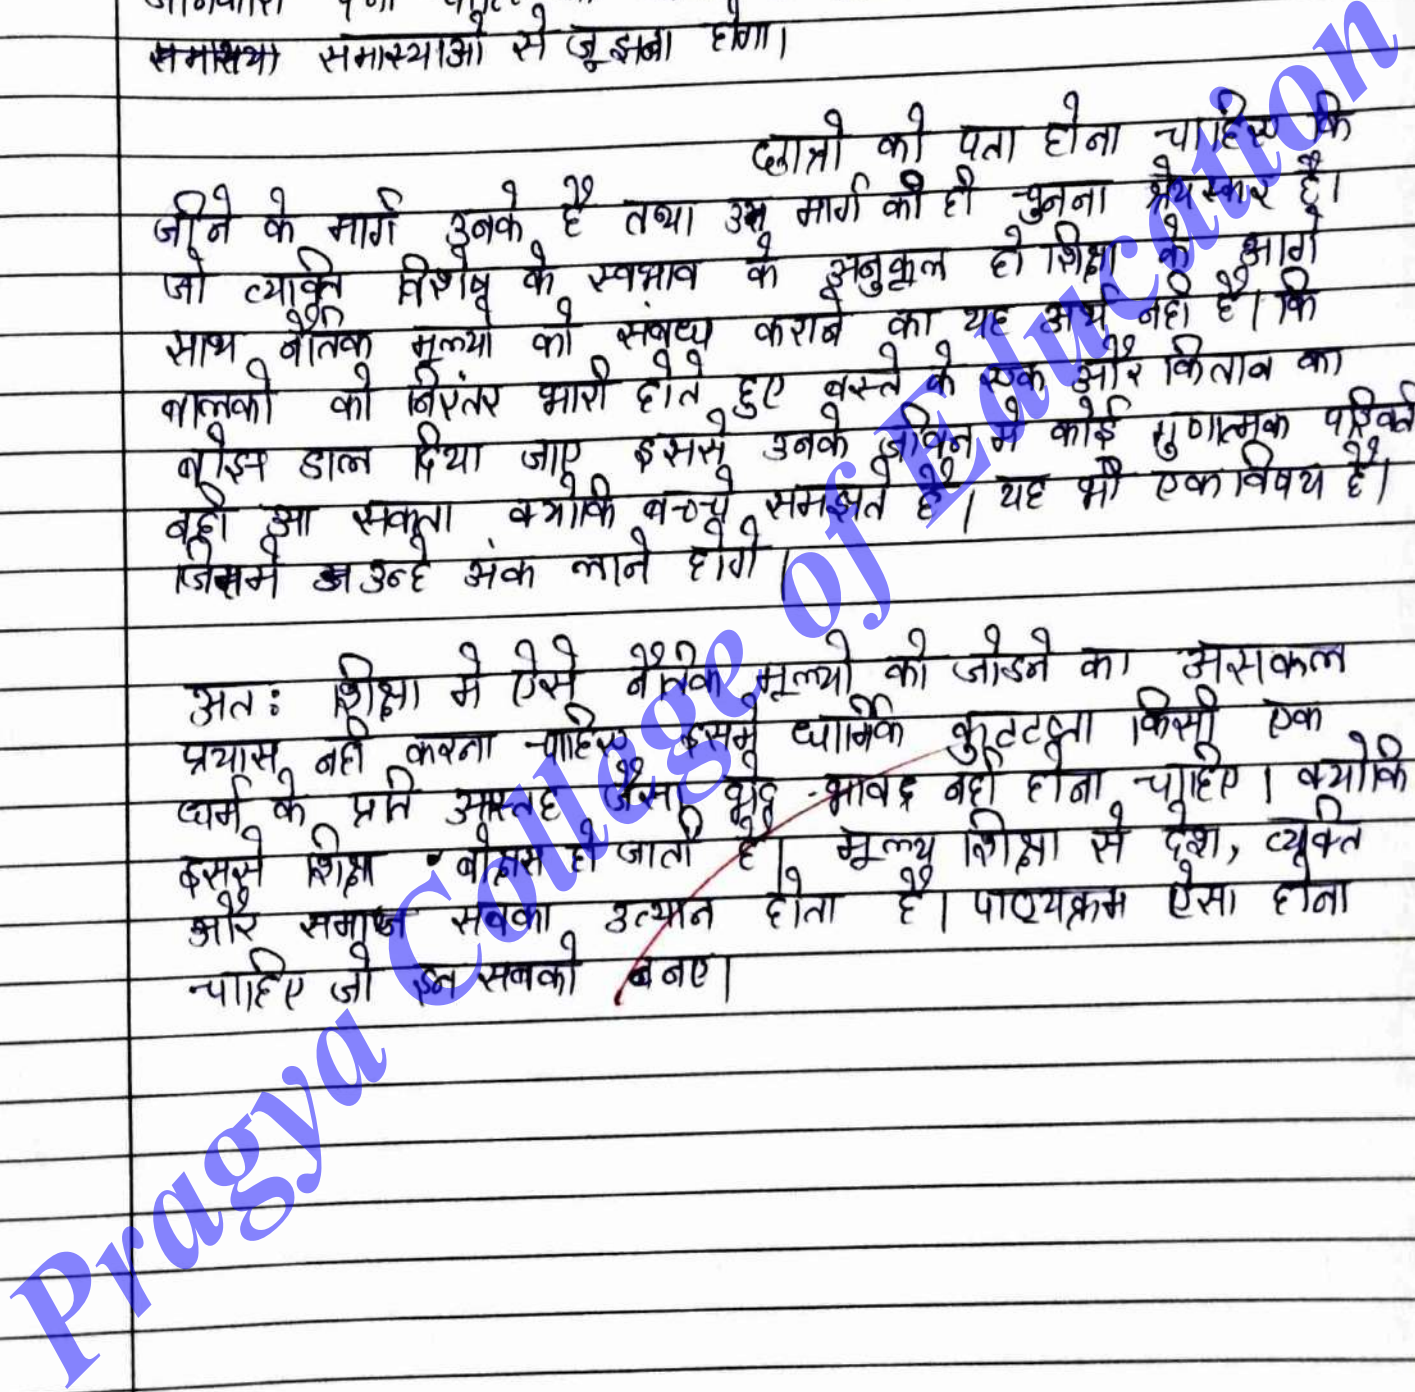 समास्या समास्याओ से जूझना होगा।
छात्रो को पता होना चाहिए कि
जीने के मार्ग उनके है तथा उस मार्ग को ही चुनना श्रेयस्कर है।
जो व्यक्ति विशेष के स्वभाव के अनुकूल हो शिक्षा के आगे
साथ नैतिक मूल्यो को संबध्ध कराने का यह अर्थ नही है। कि
बालको को निरंतर भारी होते हुए बस्ते के एक और किताब का
बोझ डाल दिया जाए इससे उनके जीवन मे कोई गुणात्मक परिवर्त
नही आ सकता क्योकि बच्चे समझते है। यह भी एक विषय है।
जिसमे उन्हे अंक लाने होगे।
अतः शिक्षा मे ऐसे नैतिक मूल्यो को जोडने का असकल
प्रयास नही करना चाहिए इसमे धार्मिक कुटटता किसी एक
धर्म के प्रति जैसा भेद-भाव नही होना चाहिए। क्योकि
इससे शिक्षा हो जाती है। मूल्य शिक्षा से देश, व्यक्ति
और समाज सबका उत्थान होता है। पाठ्यक्रम ऐसा होना
चाहिए जो इन सबको बनाए।
Pragya College of Education